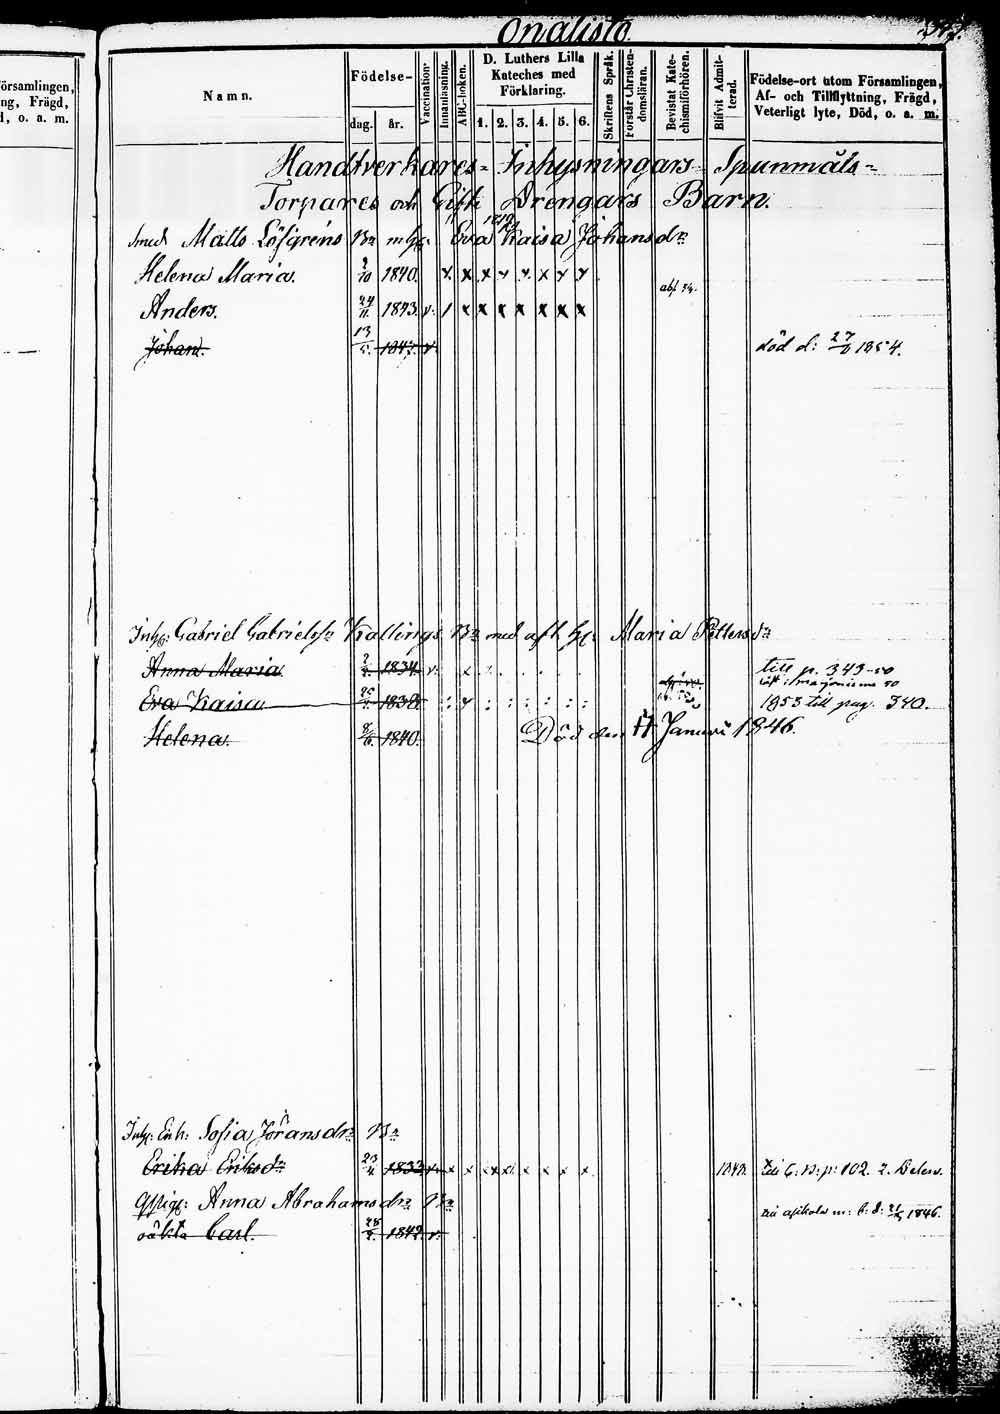 örsamlingen,
ng, Frägd,
d, o. a. m.
Onalisto.
Namn.
Födelse-
dag.
år.
Vaccination
Innanläsning.
ABC-boken.
D. Luthers Lilla
Kateches med
Förklaring.
1. 2. 3. 4. 5. 6.
Skriftens Språk.
Förstår Christen-
domsläran.
Bevistat Kate-
chismiförhören.
Blifvit Admit-
terad.
Födelse-ort utom Församlingen,
Af- och Tillflyttning, Frägd,
Veterligt lyte, Död, o. a. m.
Handtverkares- Inhysningars- Spunmåls-
Torpares och Gifte Drengars Barn.
Smed Matts Löfgrens Bn m h: Eva Kaisa Johansdr
Helena Maria. 10 1840. x x x x x x x x
abf 54.
Anders. 24/11 1843. v. / x x x x x x x
Johan. 13/5 1847. v. död d: 27 1854.
Inh: Gabriel Gabrielss: Kallings Bn med afl h: Maria Pettersdr
Anna Maria 1834. v. x till p. 343-50
Eva Kaisa 1838. 1853 till pag. 340.
Helena. 8/6. 1840. Död den 17 Januari 1846.
Inh: Enk: Sofia Jöransdr Bn
Erika Eriksdr 23 1832 v. x x x x x x x x 1848. p: 102.
Anna Abrahamsdr Bn
oäkta Carl. 28 1842. v. 1846.